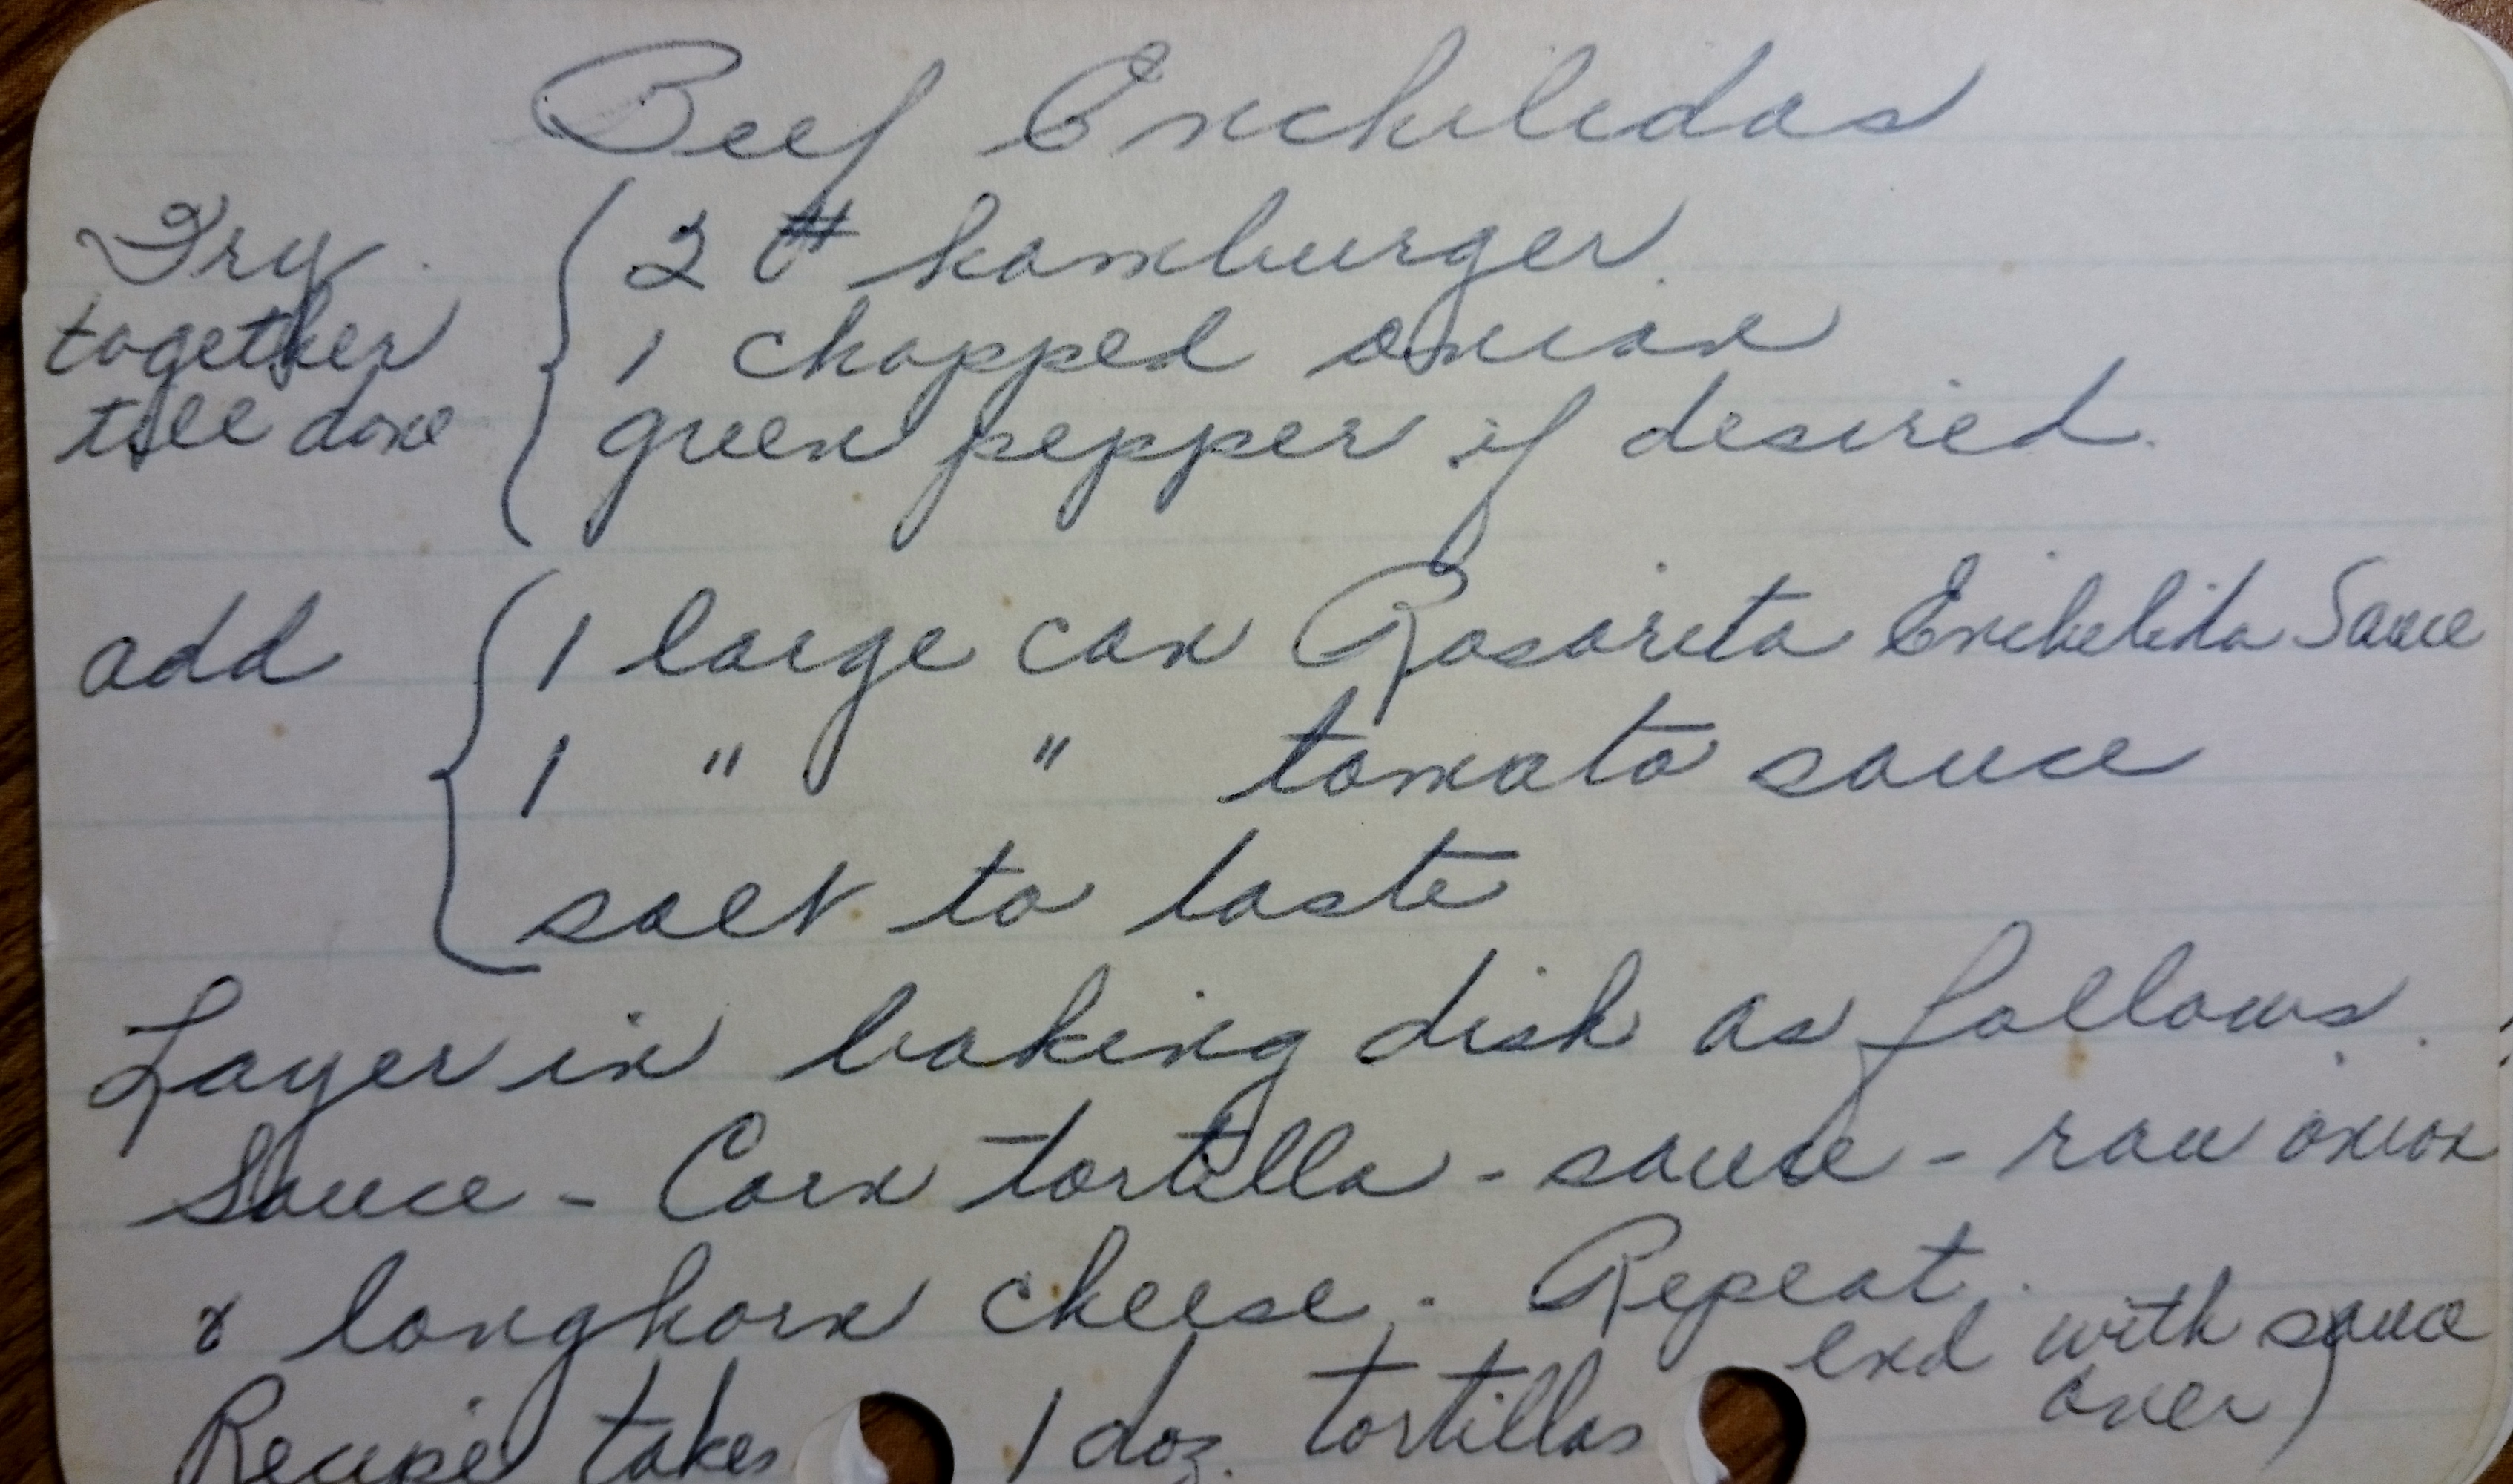 Beef Enchiladas
Fry together till done { 2 # hamburger
1 chopped onion
green pepper if desired.
add { 1 large can Rosarita Enchilida Sauce
1 " " tomato sauce
salt to taste
Layer in baking dish as follows.
Sauce - Corn tortilla - sauce - raw onion
& longhorn cheese. Repeat.
end with sauce
Recipe takes 1 doz. tortillas
over)